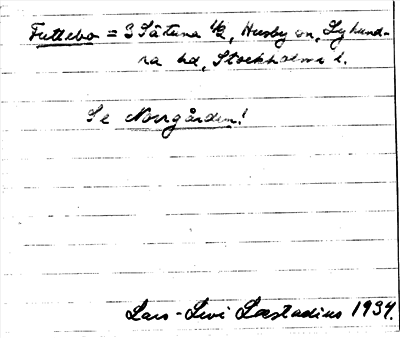 Futtebo = 3 Såtuna 1/2, Husby sn, Lyhund-
ra hd, Stockholms l.
Se Norrgården!
Lars-Levi Læstadius 1934.